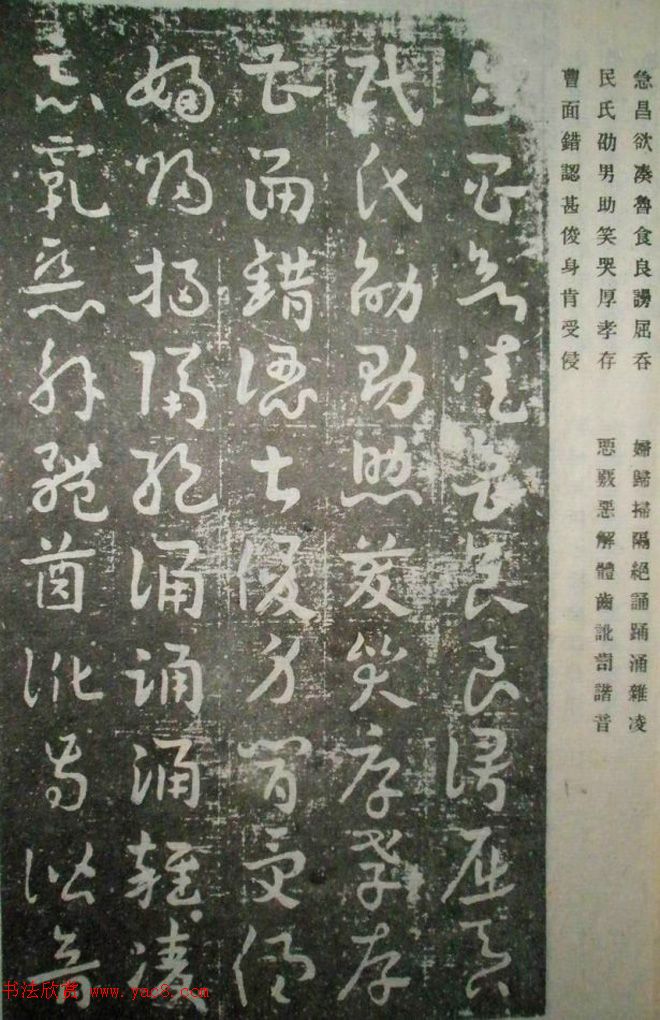 急昌欲凑魯食良謭屈吞
民氏劭男助笑哭厚孝存
曹面錯認甚俊身肯受侵
婦歸掃隔絕誦踊涌雜凌
惡覈惡解體齒訛耑諧普
书法欣赏 www.yac8.com